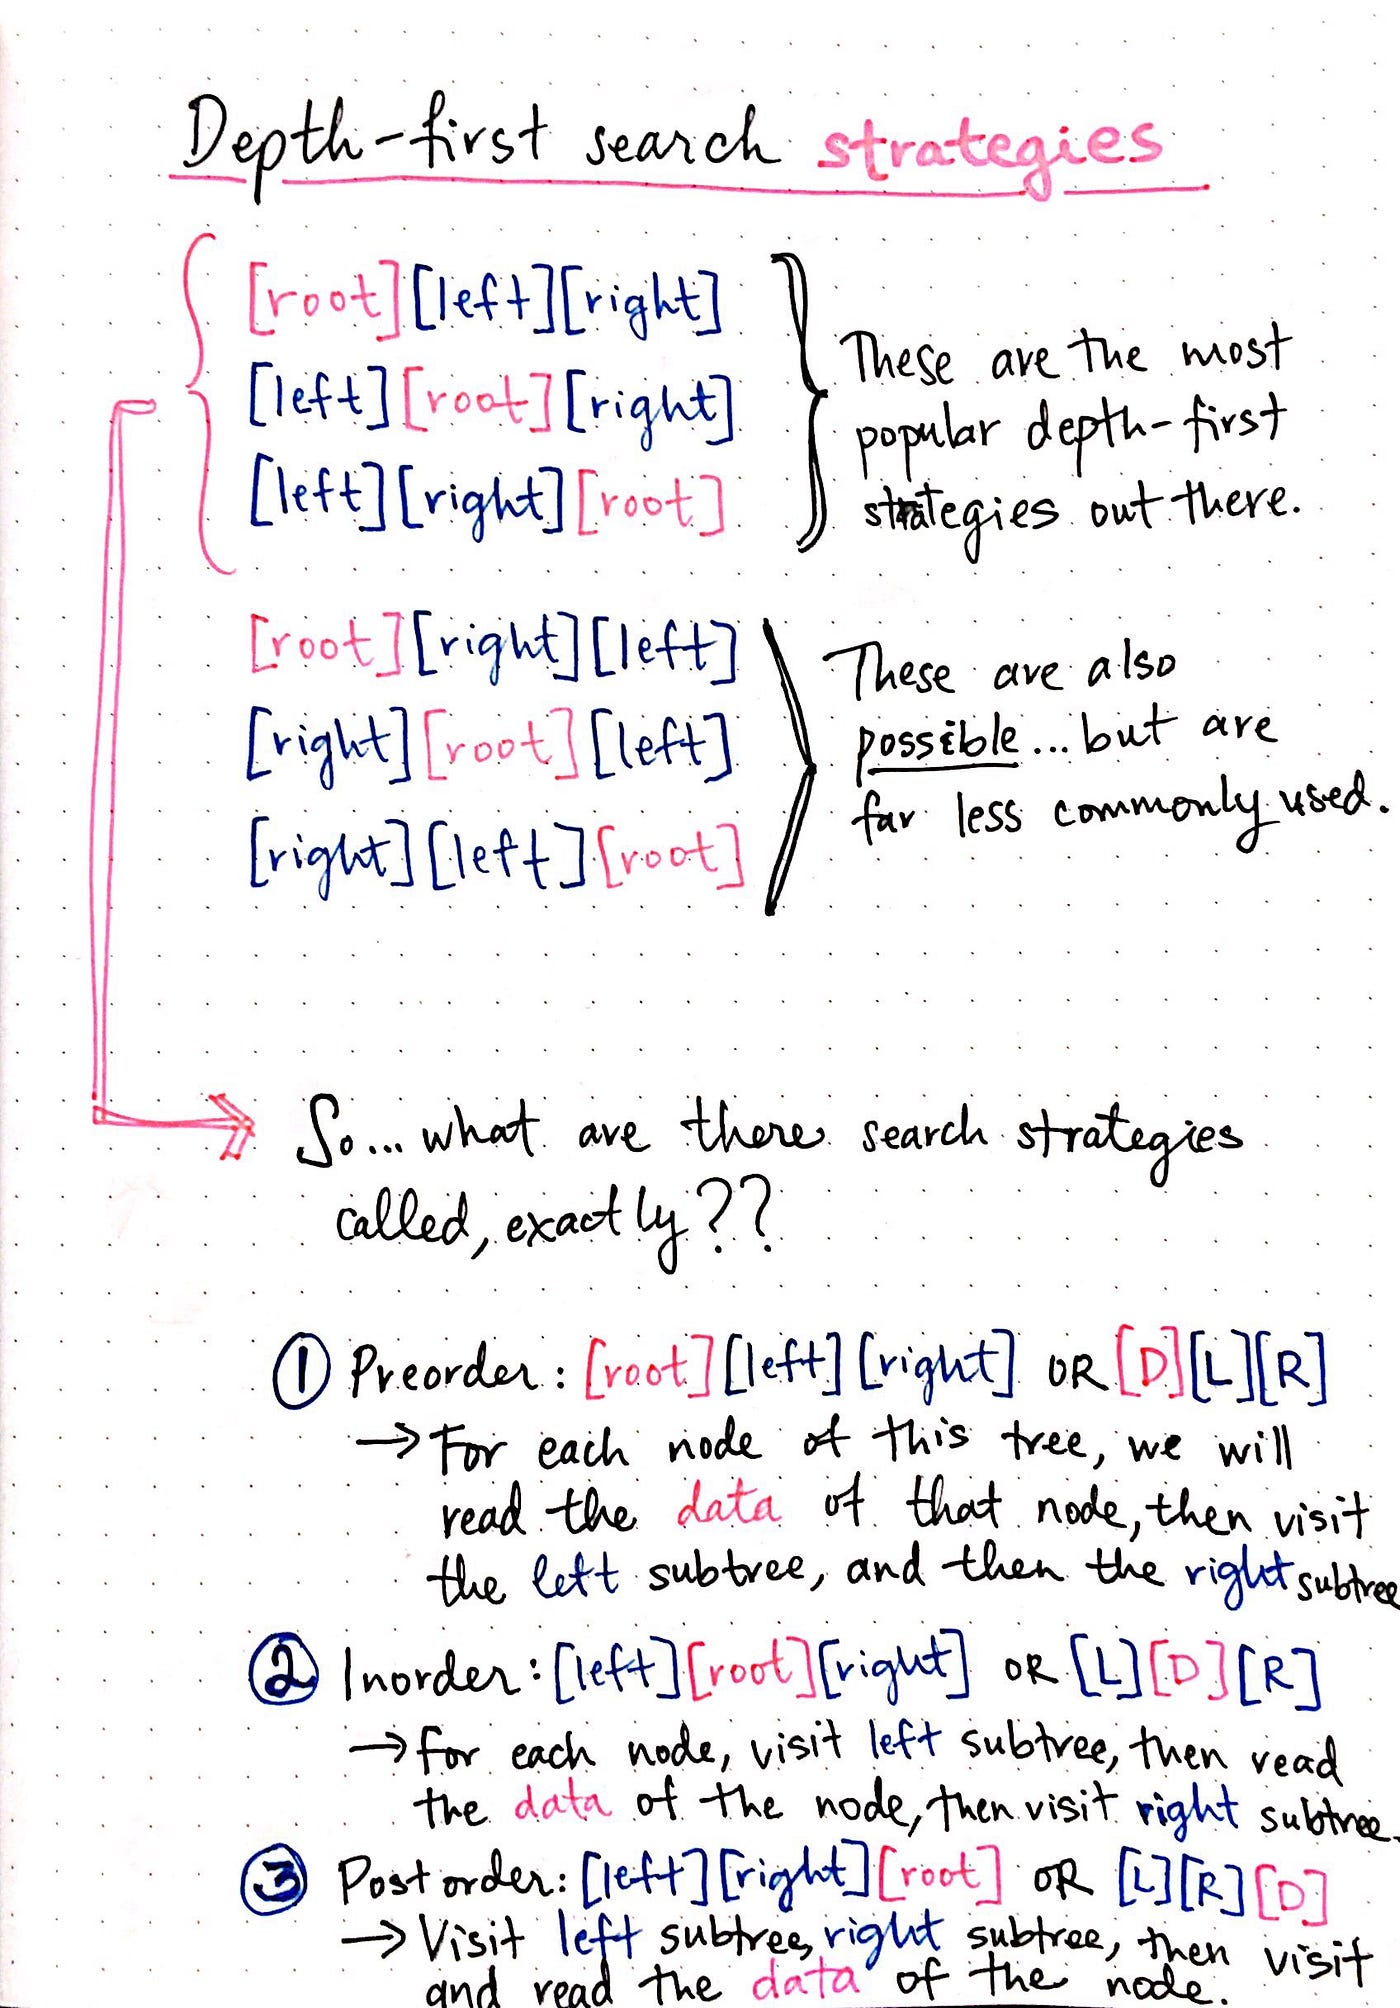 Depth-first search strategies
[root][left][right]
[left][root][right]
[left][right][root]
These are the most
popular depth-first
strategies out there.
[root][right][left]
[right][root][left]
[right][left][root]
These are also
possible...but are
far less commonly used.
So...what are there search strategies
called, exactly??
① Preorder: [root][left][right] OR [D][L][R]
→ For each node of this tree, we will
read the data of that node, then visit
the left subtree, and then the right subtree
② Inorder: [left][root][right] OR [L][D][R]
→ for each node, visit left subtree, then read
the data of the node, then visit right subtree.
③ Postorder: [left][right][root] OR [L][R][D]
→ Visit left subtree, right subtree, then visit
and read the data of the node.